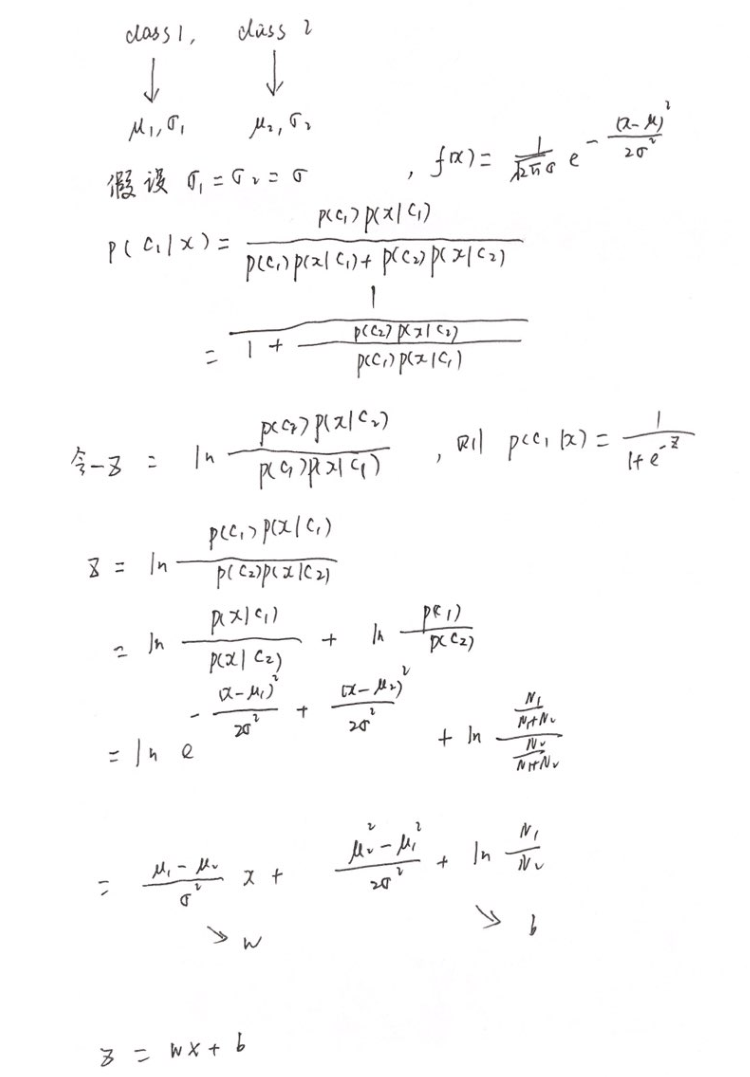 class 1, class 2
↓ ↓
μ₁, σ₁ μ₂, σ₂
假设 σ₁ = σ₂ = σ , f(x) = \frac{1}{\sqrt{2π}σ} e^{-\frac{(x-μ)²}{2σ²}}
p(c₁|x) = \frac{p(c₁)p(x|c₁)}{p(c₁)p(x|c₁) + p(c₂)p(x|c₂)}
= \frac{1}{1 + \frac{p(c₂)p(x|c₂)}{p(c₁)p(x|c₁)}}
令 -z = ln \frac{p(c₂)p(x|c₂)}{p(c₁)p(x|c₁)} , 则 p(c₁|x) = \frac{1}{1+e^{-z}}
z = ln \frac{p(c₁)p(x|c₁)}{p(c₂)p(x|c₂)}
= ln \frac{p(x|c₁)}{p(x|c₂)} + ln \frac{p(c₁)}{p(c₂)}
= ln e^{-\frac{(x-μ₁)²}{2σ²} + \frac{(x-μ₂)²}{2σ²}} + ln \frac{\frac{N₁}{N₁+N₂}}{\frac{N₂}{N₁+N₂}}
= \frac{μ₁-μ₂}{σ²} x + \frac{μ₂²-μ₁²}{2σ²} + ln \frac{N₁}{N₂}
↘ w ↘ b
z = wx + b